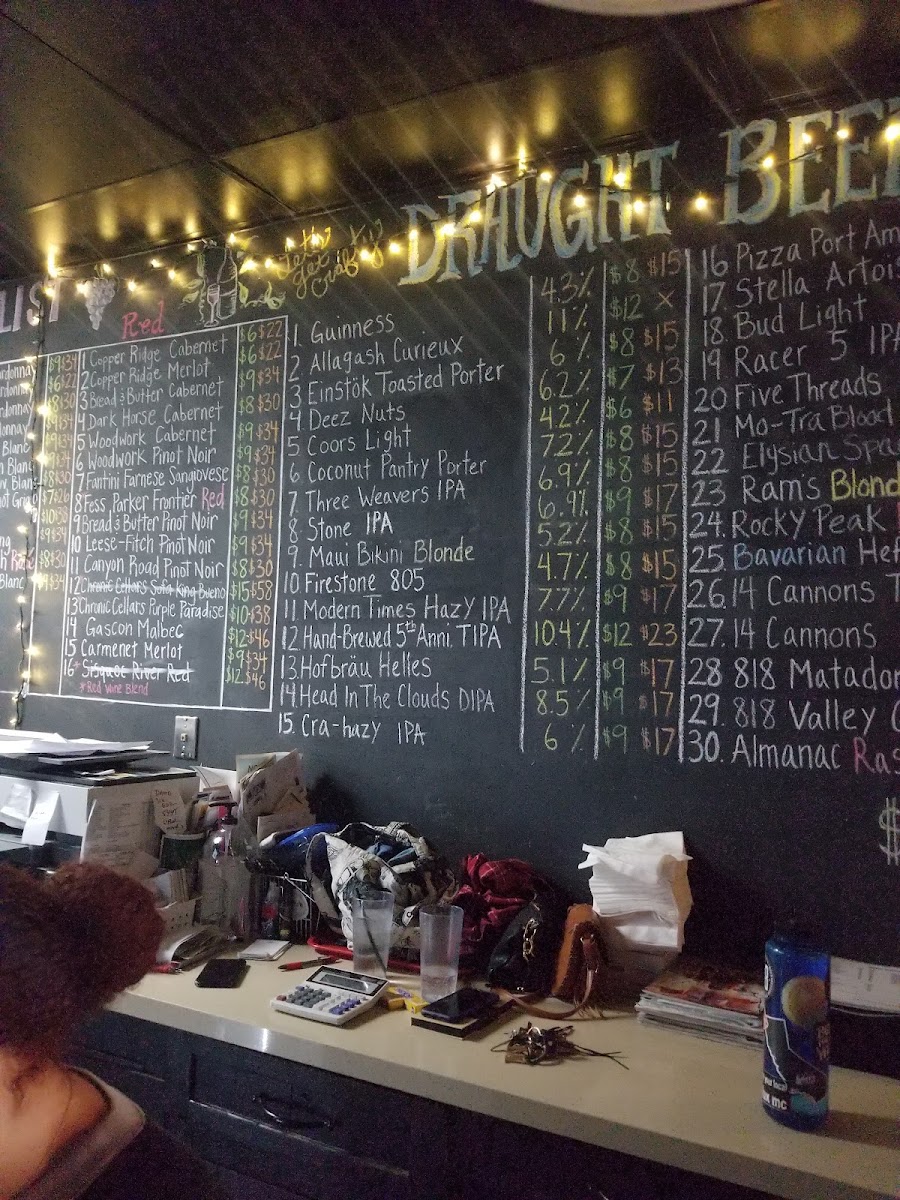 LIST
Let's get crafty
DRAUGHT BEE
Red
1 Copper Ridge Cabernet $6 $22
2 Copper Ridge Merlot $6 $22
3 Bread & Butter Cabernet $9 $34
4 Dark Horse Cabernet $8 $30
5 Woodwork Cabernet $9 $34
6 Woodwork Pinot Noir $9 $34
7 Fantini Farnese Sangiovese $8 $30
8 Fess Parker Frontier Red $8 $30
9 Bread & Butter Pinot Noir $9 $34
10 Leese-Fitch Pinot Noir $9 $34
11 Canyon Road Pinot Noir $8 $30
12 Chronic Cellars Sofa King Bueno $15 $58
13 Chronic Cellars Purple Paradise $10 $38
14 Gascon Malbec $12 $46
15 Carmenet Merlot $9 $34
16 * Sisquoc River Red $12 $46
* Red Wine Blend
1. Guinness 4.3% $8 $15
2 Allagash Curieux 11% $12 X
3 Einstök Toasted Porter 6% $8 $15
4 Deez Nuts 6.2% $7 $13
5 Coors Light 4.2% $6 $11
6 Coconut Pantry Porter 7.2% $8 $15
7. Three Weavers IPA 6.9% $8 $15
8. Stone IPA 6.9% $9 $17
9. Maui Bikini Blonde 5.2% $8 $15
10 Firestone 805 4.7% $8 $15
11 Modern Times Hazy IPA 7.7% $9 $17
12 Hand-Brewed 5th Anni. TIPA 10.4% $12 $23
13. Hofbräu Helles 5.1% $9 $17
14 Head In The Clouds DIPA 8.5% $9 $17
15. Cra-hazy IPA 6% $9 $17
16 Pizza Port Am
17. Stella Artois
18. Bud Light
19 Racer 5 IPA
20 Five Threads
21 Mo-Tra Blood
22 Elysian Spa
23 Ram's Blond
24. Rocky Peak
25. Bavarian Hef
26. 14 Cannons T
27. 14 Cannons
28 818 Matador
29. 818 Valley
30. Almanac Ras
$